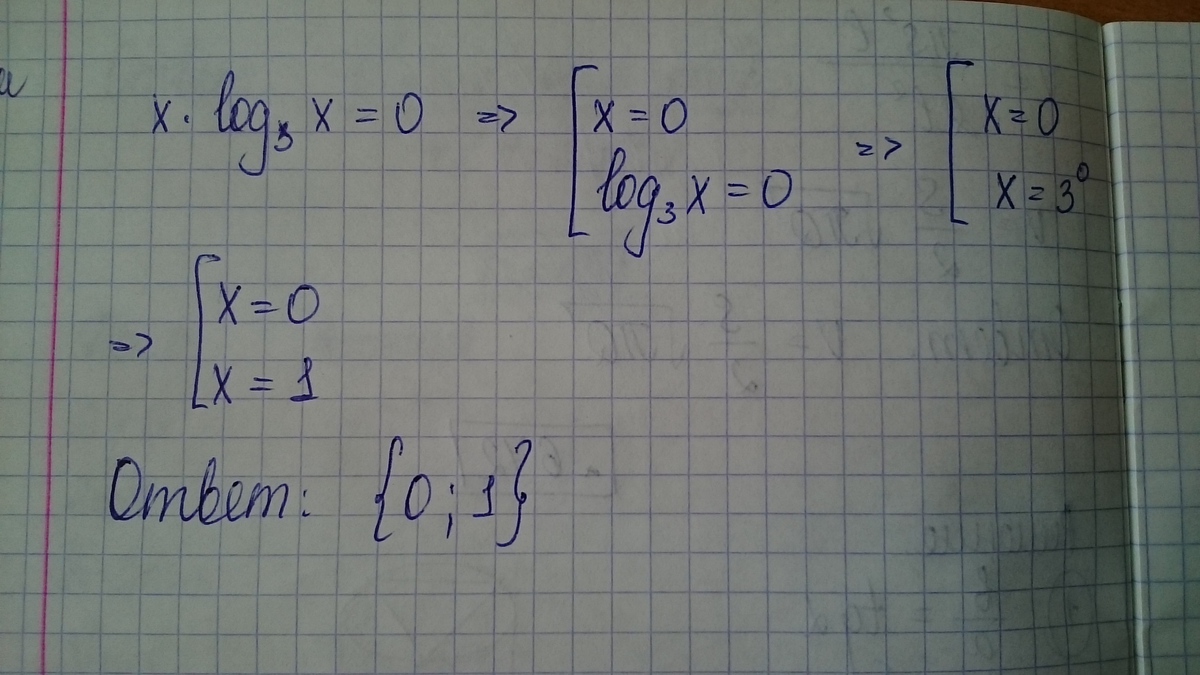 x · log₃ x = 0 => [ x = 0 => [ x = 0
log₃ x = 0 x = 3⁰
=> [ x = 0
x = 1
Ответ: {0; 1}